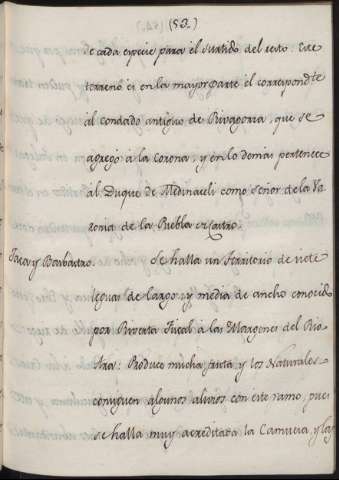 (53.)
de cada especie para el surtido del resto. Este
terreno es en la mayor parte el correspond.te
al condado antiguo de Rivagorza, que se
agregó a la Corona, y en lo demas pertenece
al Duque de Medinaceli como señor de la Ba
ronia de la Puebla de Castro.
Jaca y Barbastro. Se halla un territorio de siete
leguas de largo, y media de ancho conocido
por Rivera Fiscal a las Margenes del Rio
Ara: Produce mucha fruta y los Naturales
consiguen algunos alivios con este ramo, pues
se halla muy acreditada la Camuesa, y las